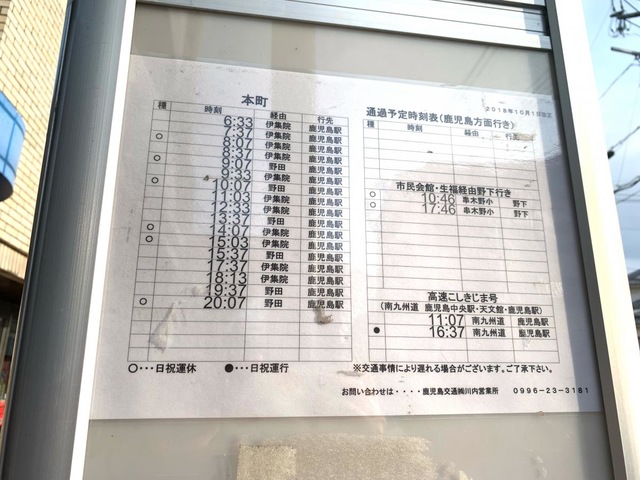 本町
種 時刻 経由 行先
6:33 伊集院 鹿児島駅
7:37 伊集院 鹿児島駅
○ 8:07 伊集院 鹿児島駅
伊集院 鹿児島駅
○ 野田 鹿児島駅
9:33 伊集院 鹿児島駅
○ 10:07 野田 鹿児島駅
11:03 伊集院 鹿児島駅
伊集院 鹿児島駅
野田 鹿児島駅
○ 14:07 伊集院 鹿児島駅
○ 15:03 伊集院 鹿児島駅
15:37 野田 鹿児島駅
17:37 伊集院 鹿児島駅
18:13 伊集院 鹿児島駅
野田 鹿児島駅
○ 20:07 野田 鹿児島駅
○・・・日祝運休 ●・・・日祝運行
2018年10月1日
通過予定時刻表(鹿児島方面行き)
種 時刻 経由 行先
市民会館・生福経由野下行き
○ 10:46 串木野小 野下
○ 17:46 串木野小 野下
高速こしきじま号
(南九州道 鹿児島中央駅・天文館・鹿児島駅)
11:07 南九州道 鹿児島駅
● 16:37 南九州道 鹿児島駅
※交通事情により遅れる場合がございます。ご了承下さい。
お問い合わせは・・・・鹿児島交通㈱川内営業所 0996-23-3181